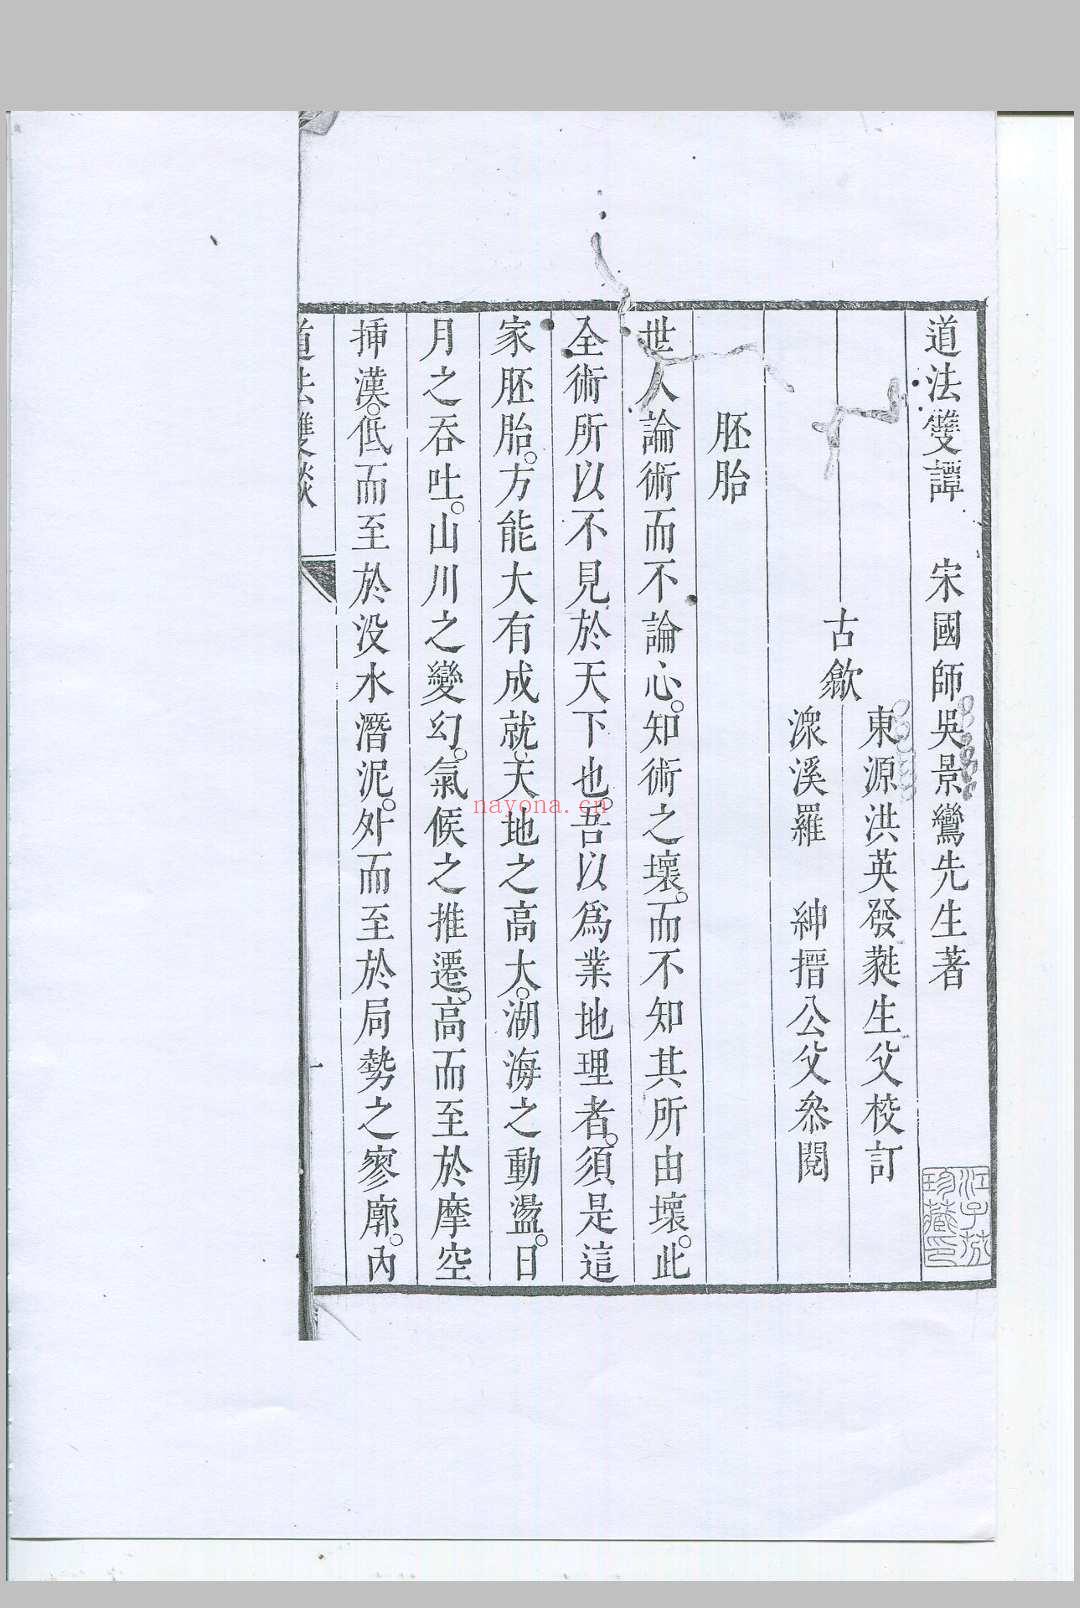 道法雙譚　宋國師吳景鸞先生著
古歙
東源洪英發蕤生父校訂
潨溪羅　紳搢公父叅閱
胚胎
世人論術而不論心。知術之壞。而不知其所由壞。此
全術所以不見於天下也吾以爲業地理者。須是這
家胚胎。方能大有成就。天地之高大。湖海之動盪。日
月之吞吐。山川之變幻。氣候之推遷。高而至於摩空
揷漢。低而至於没水潛泥。外而至於局勢之寥廓。內
道法雙談
一
江子
珍藏印
nayona.cn